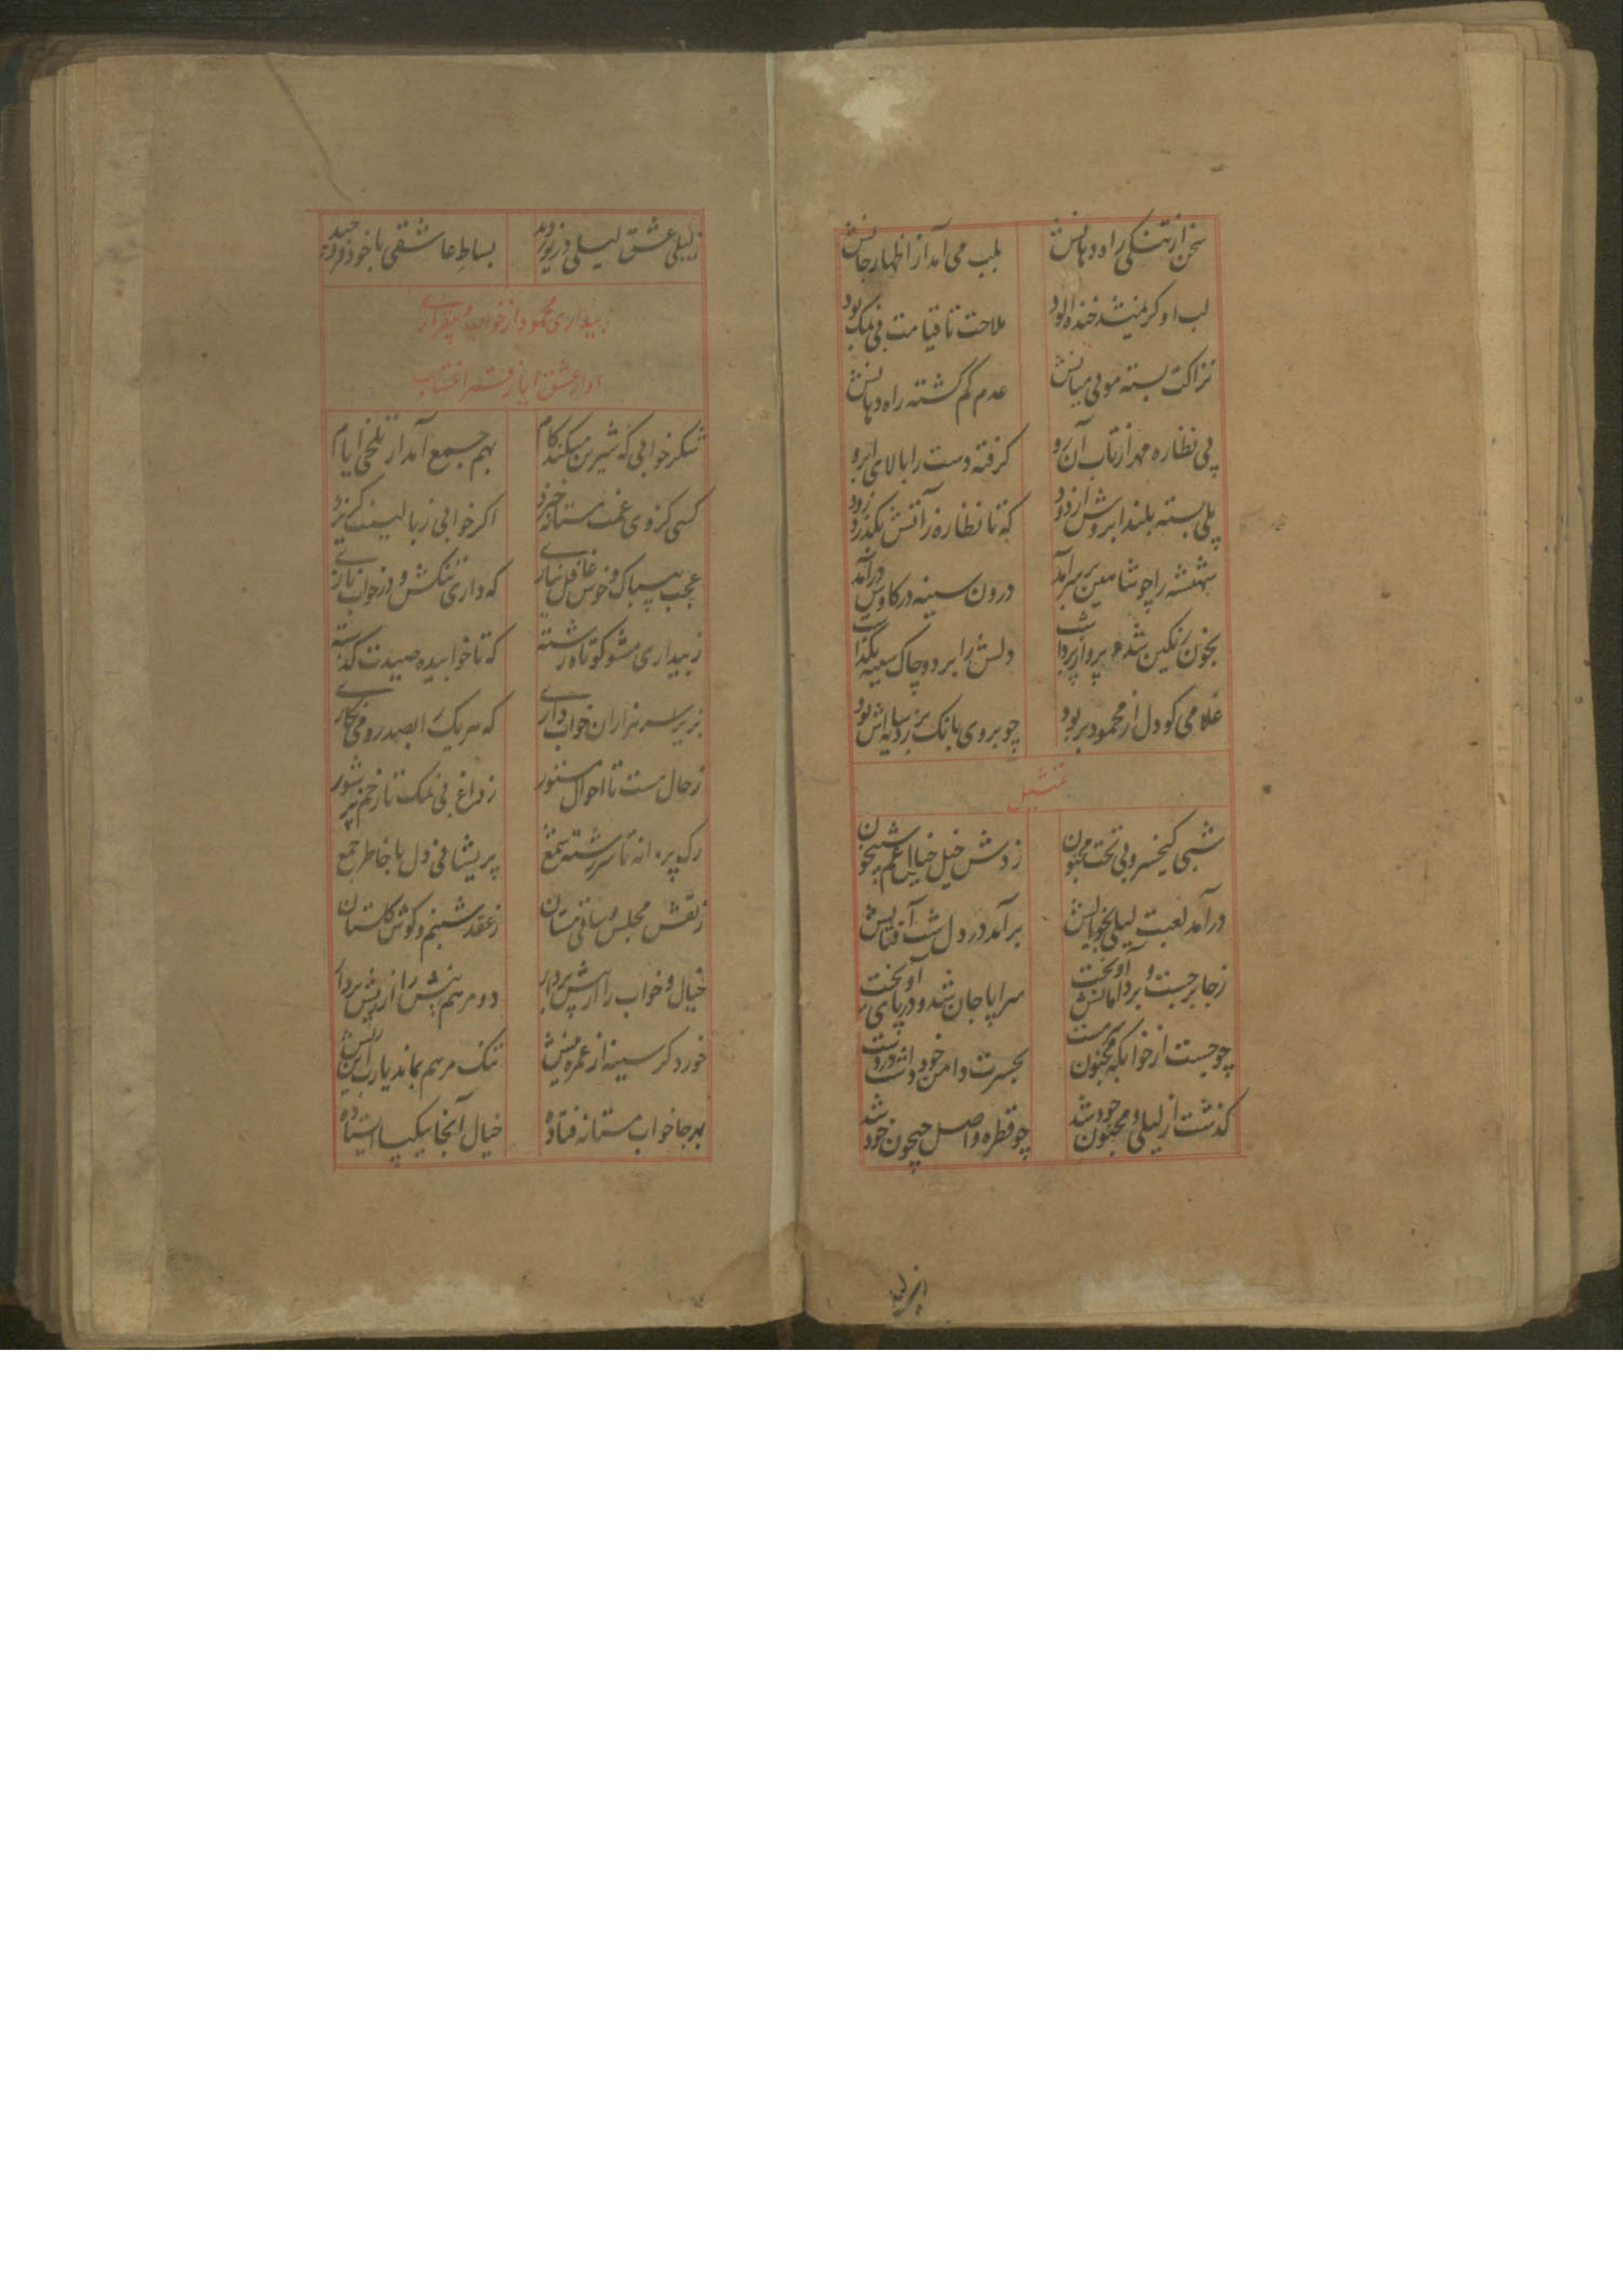 سخن از تنکی راه دهانش بلب می آمد از اظهار جانش
لب او کر نمیشد خنده الود ملاحت تا قیامت بی نمک بود
نزاکت بسته موی میانش عدم کم کشته راه دهانش
پی نظاره مهر از تاب آن رو کرفته دست را بالای ابرو
پلی بسته بلند ابروش از دود که تا نظاره ز آتش بکذرد زود
شهنشه را چو شاهین بر سر آمد درون سینه در کاوش درآمد
بخون رنکین شده پرواز برداشت دلش را برد و چاک سینه بکذاشت
غلامی کو دل از محمود بربود چو بروی بانک بر زد سایه اش بود
تمثیل
شبی کیخسرو بی تخت مجنون زدش خیل خیال غم شبیخون
درآمد لعبت لیلی بخوابش برآمد در دل شب آفتابش
ز جا برجست و بر دامانش آویخت سراپا جان شد و در پای او ریخت
چو جست از خوابکه مجنون سرمست بحسرت دامن خود داشت در دست
کذشت از لیلی و مجنون خود شد چو قطره واصل جیحون خود شد
ز لیلی عشق لیلی در بساط عاشقی با خود
بیداری محمود از خواب و بیقراری
او از عشق ایاز
شکر خوابی که شیرین میکند کام بهم جمع آمد از تلخی ایام
کسی کز وی غمت مستانه خیزد اکر خوابی ز بالینت کریزد
عجب بیباک و خوش غافل نیازی که داری نکش و در خواب نازی
ز بیداری مشو کوتاه رشته که تا خوابیده صیدت کذشته
بزیر سر هزاران خواب داری که هر یک را بصد رو می نکاری
ز حال مست تا احوال مستور ز داغ بی نمک تا زخم پر شور
رک پروانه تا سررشته شمع پریشانی دل با خاطر جمع
ز نقش مجلس و ساقی مستان ز عقد شبنم و کوش کلستان
خیال و خواب را از پیش بردار دو مرهم بنش را از ریش بردار
خورد کر سینه از عمره نمک مرهم نماند یارب
بهر جا خواب مستانه فتاده خیال آنجا بیکپا ایستاده